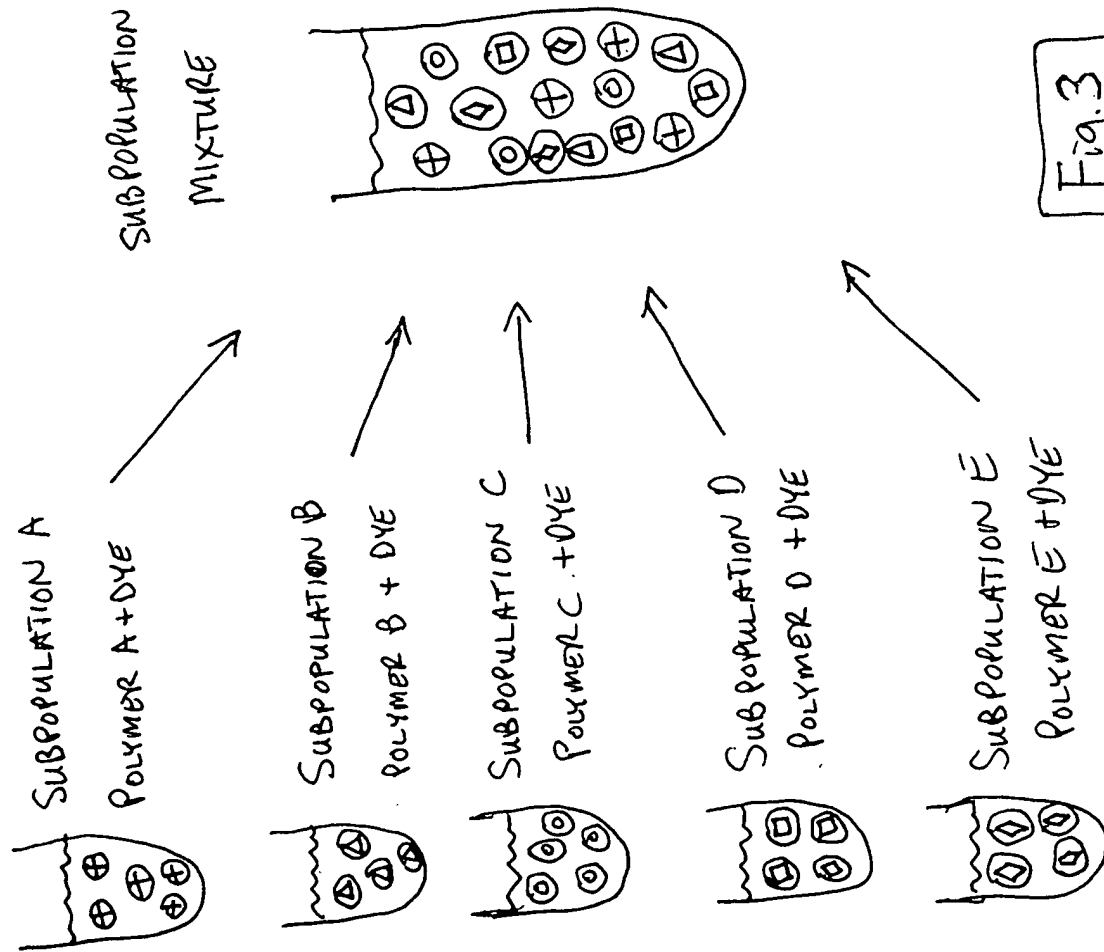 SUBPOPULATION
MIXTURE
SUBPOPULATION A
POLYMER A + DYE
SUBPOPULATION B
POLYMER B + DYE
SUBPOPULATION C
POLYMER C + DYE
SUBPOPULATION D
POLYMER D + DYE
SUBPOPULATION E
POLYMER E + DYE
Fig. 3